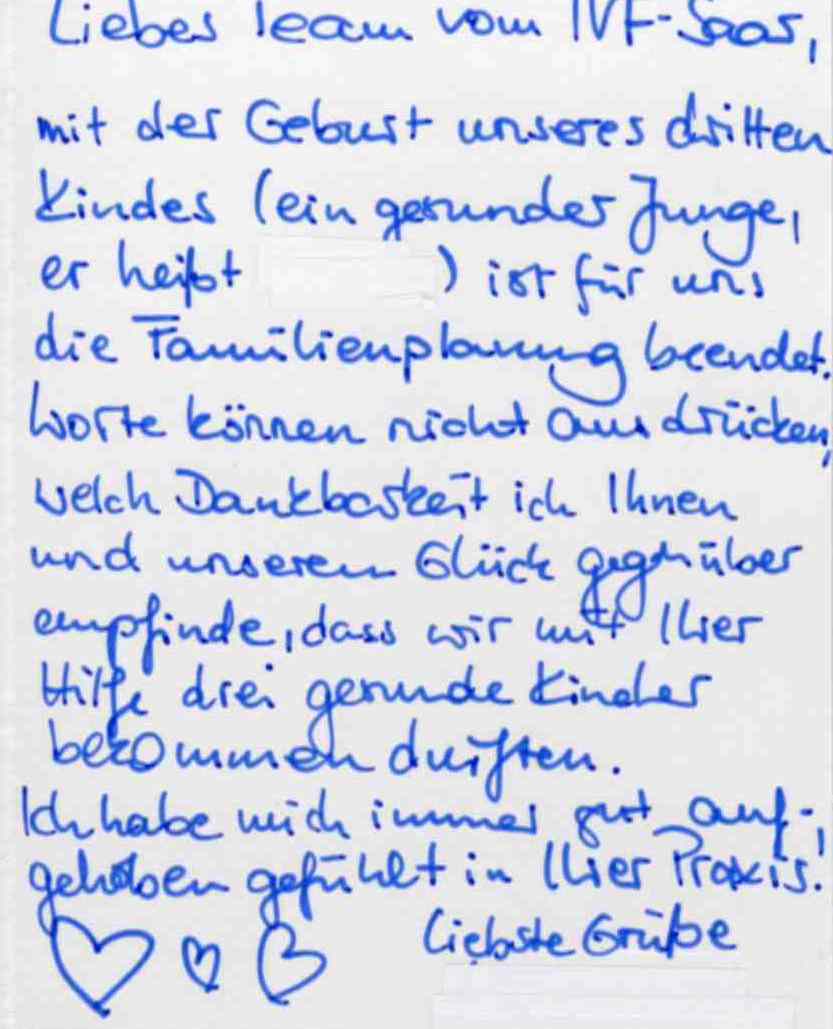 Liebes Team vom IVF-Saar,
mit der Geburt unseres dritten
Kindes (ein gesunder Junge,
er heißt ) ist für uns
die Familienplanung beendet.
Worte können nicht ausdrücken,
welch Dankbarkeit ich Ihnen
und unserem Glück gegenüber
empfinde, dass wir mit Ihrer
Hilfe drei gesunde Kinder
bekommen durften.
Ich habe mich immer gut auf-
gehoben gefühlt in Ihrer Praxis!
Liebste Grüße